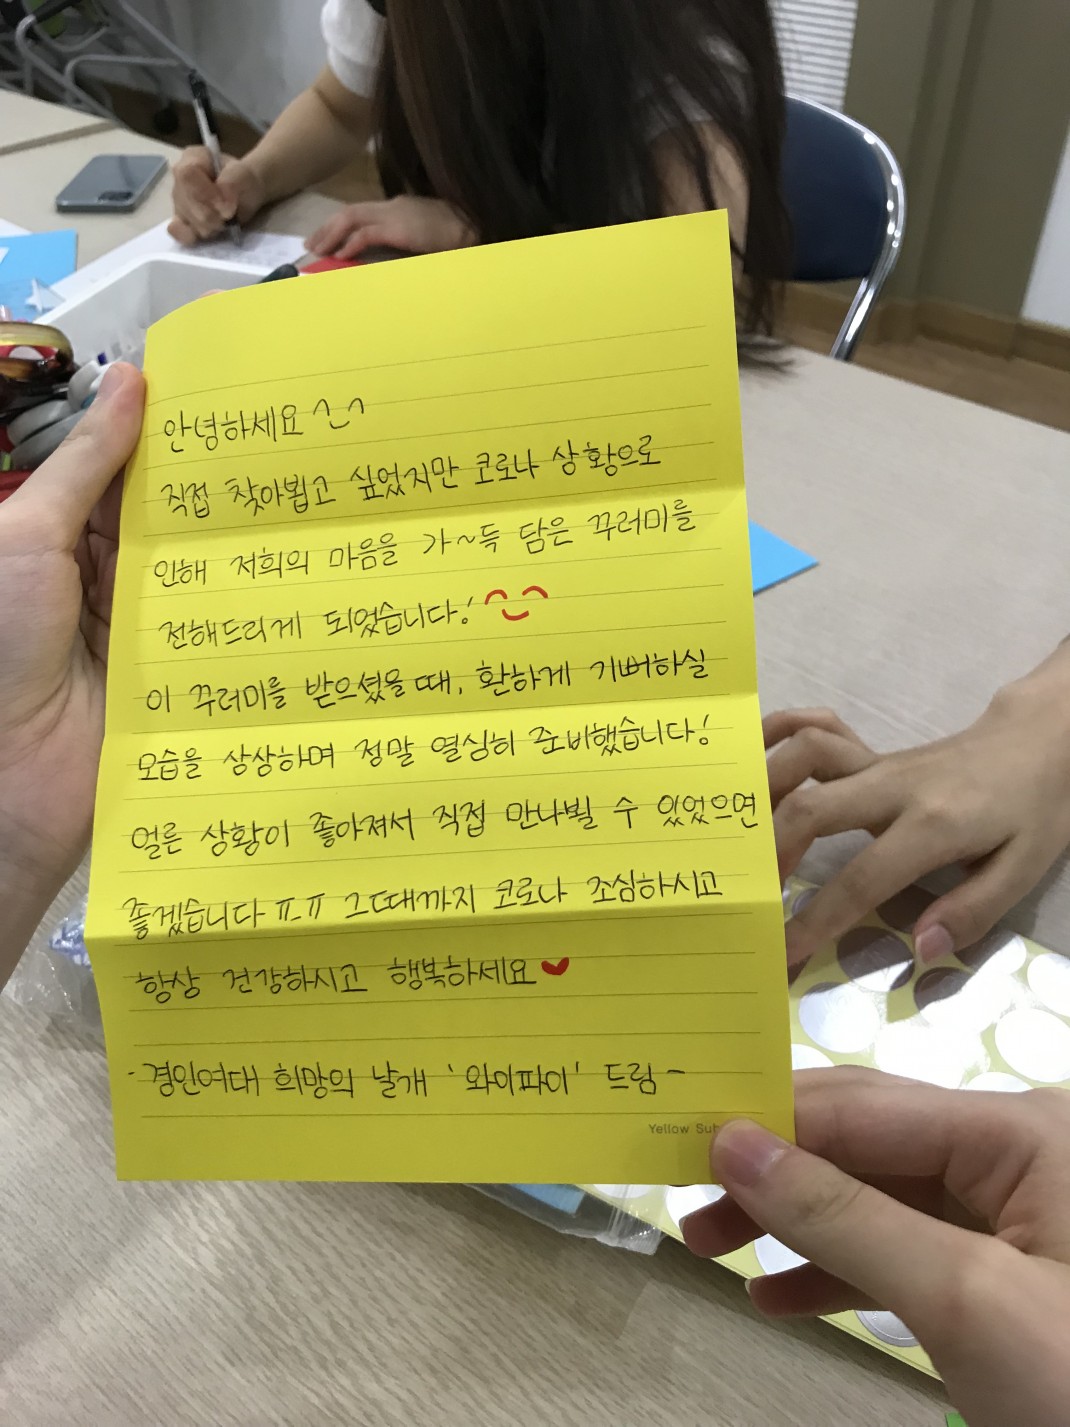 안녕하세요 ^_^
직접 찾아뵙고 싶었지만 코로나 상황으로
인해 저희의 마음을 가~득 담은 꾸러미를
전해드리게 되었습니다!
이 꾸러미를 받으셨을 때, 환하게 기뻐하실
모습을 상상하며 정말 열심히 준비했습니다!
얼른 상황이 좋아져서 직접 만나뵐 수 있었으면
좋겠습니다 ㅠ_ㅠ 그때까지 코로나 조심하시고
항상 건강하시고 행복하세요♥
- 경인여대 희망의 날개 '와이파이' 드림 -
Yellow